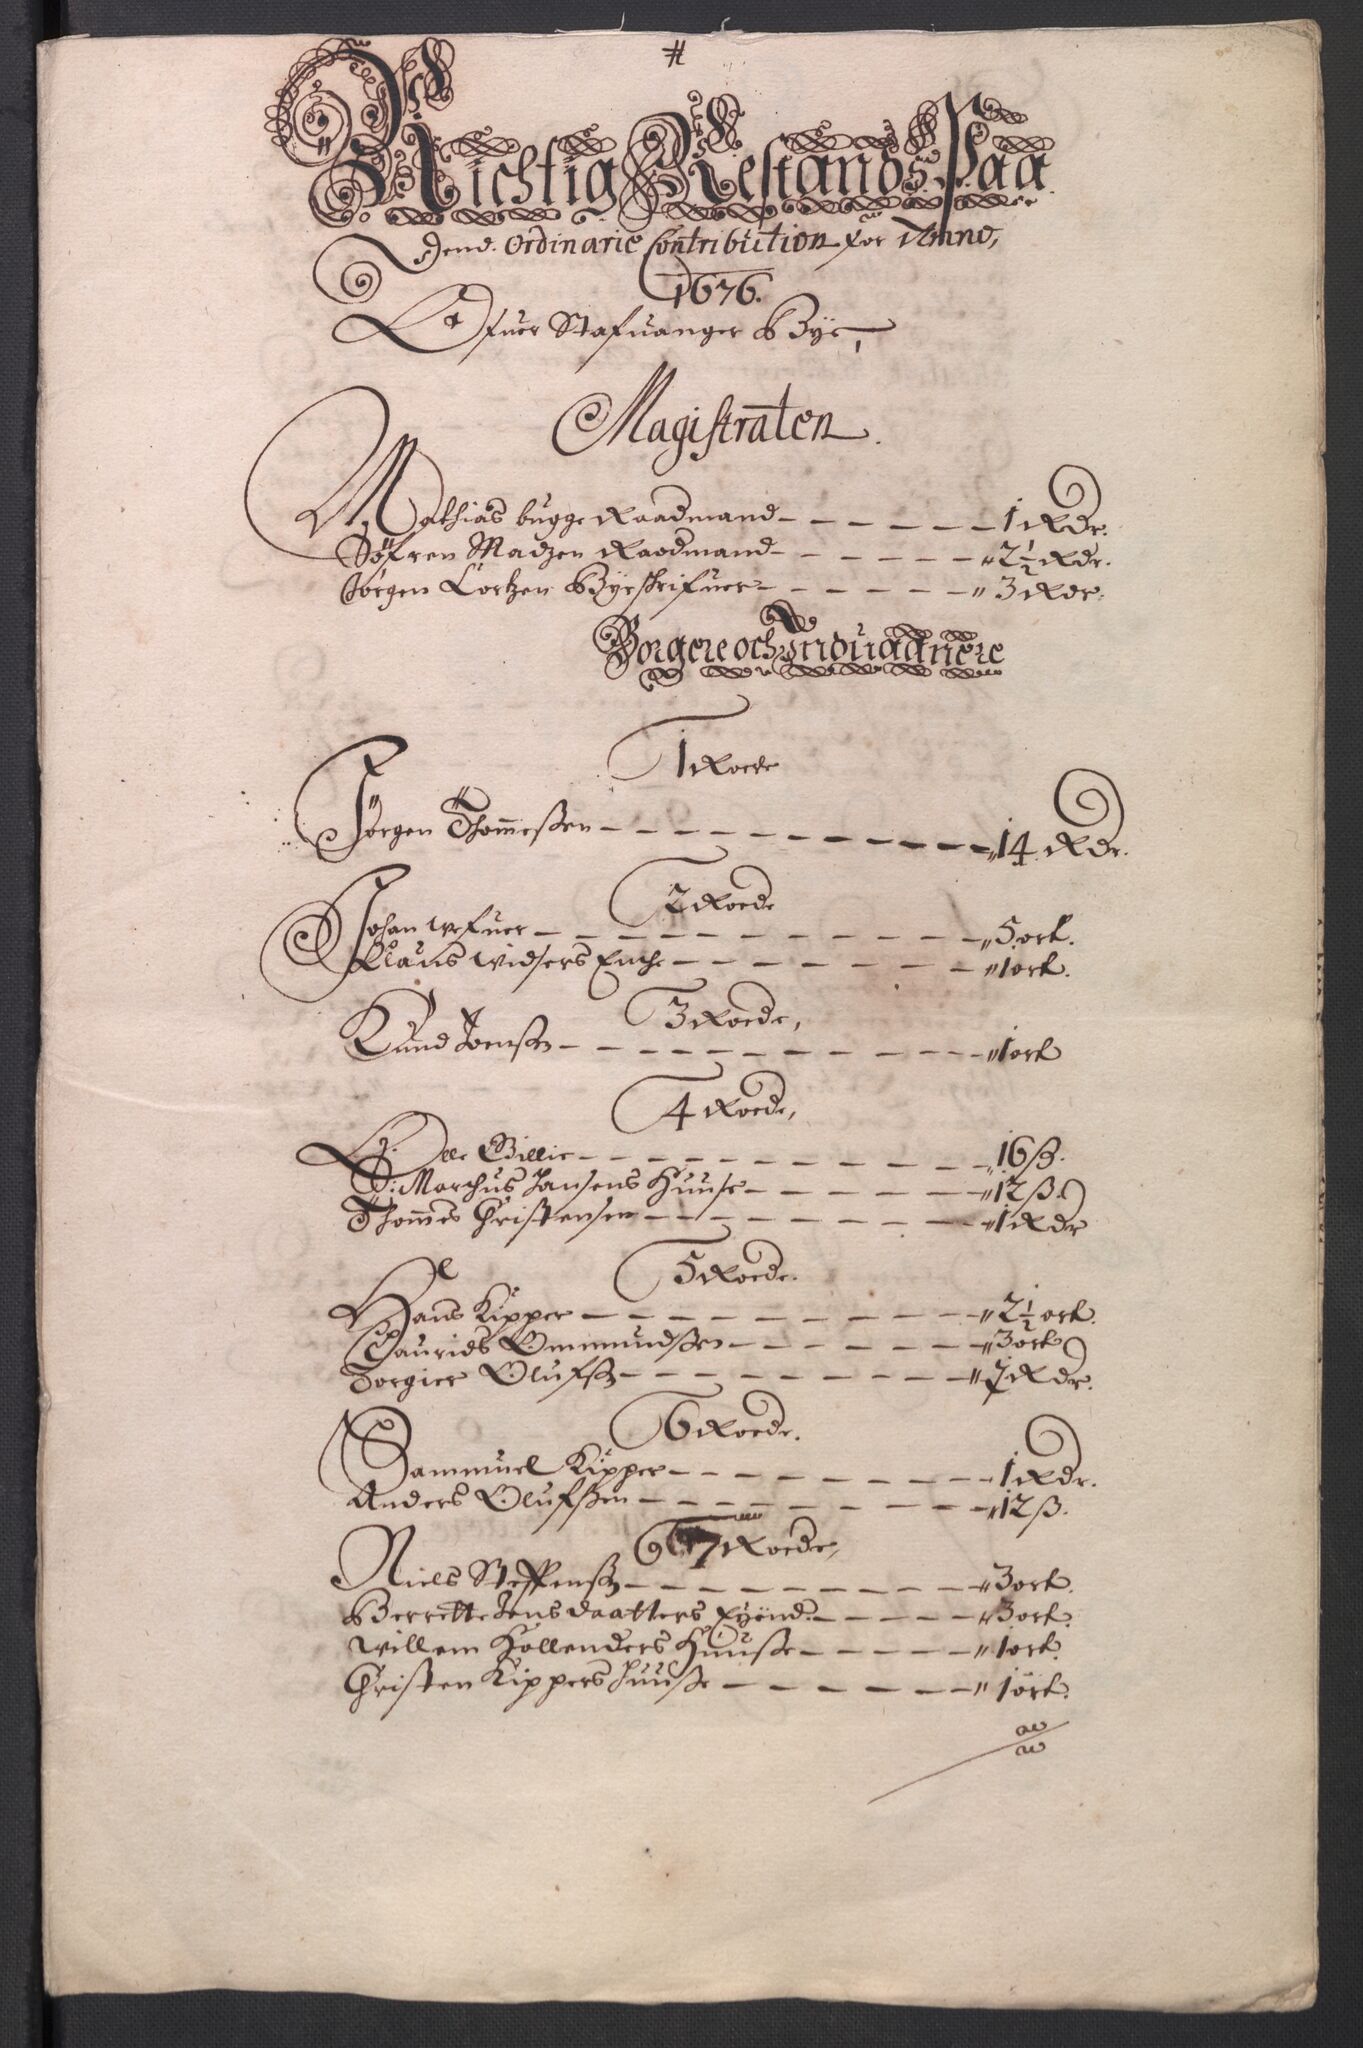 Richtig Restands Paa
dend Ordinarie Contribution for Anno,
1676.
Ofuer Stafuanger Bÿe,
Magistraten
Mathias bugge Raadmand - - - - - 1 Rdr.
Søfren Madzen Raadmand - - - - - 2½ Rdr.
Jørgen Lortzen Bÿeschrifuer - - - - - 3 Rdr.
Borgere och Induaanere
1 Roede
Jørgen Thommeßen - - - - - 14 Rdr.
2 Roede
Johan wefuer - - - - - 5 ort.
Claus widsers Enche - - - - - 1 ort.
3 Roede,
Knud Joenßen - - - - - 1 ort
4 Roede,
Olle Gillie - - - - - 16 ß.
S: Marchus Jansens Huuse - - - - - 12 ß.
Thommes Christensen - - - - - 1 Rdr
5 Roede.
Hans Kipper - - - - - 2½ ort.
Laurids Ommundßen - - - - - 3 ort
Torgier Olufß - - - - - Rdr.
6 Roede.
Sammuel Kipper - - - - - 1 Rdr.
Anders Olufßen - - - - - 12 ß.
7 Roede,
Niels Steffenß - - - - - 3 ort.
Berrette Jens daatters Eÿend. - - - - - 3 ort.
Willem Hollenders Huuße - - - - - 1 ort.
Christen Kippers Huuße - - - - - 1 ort.